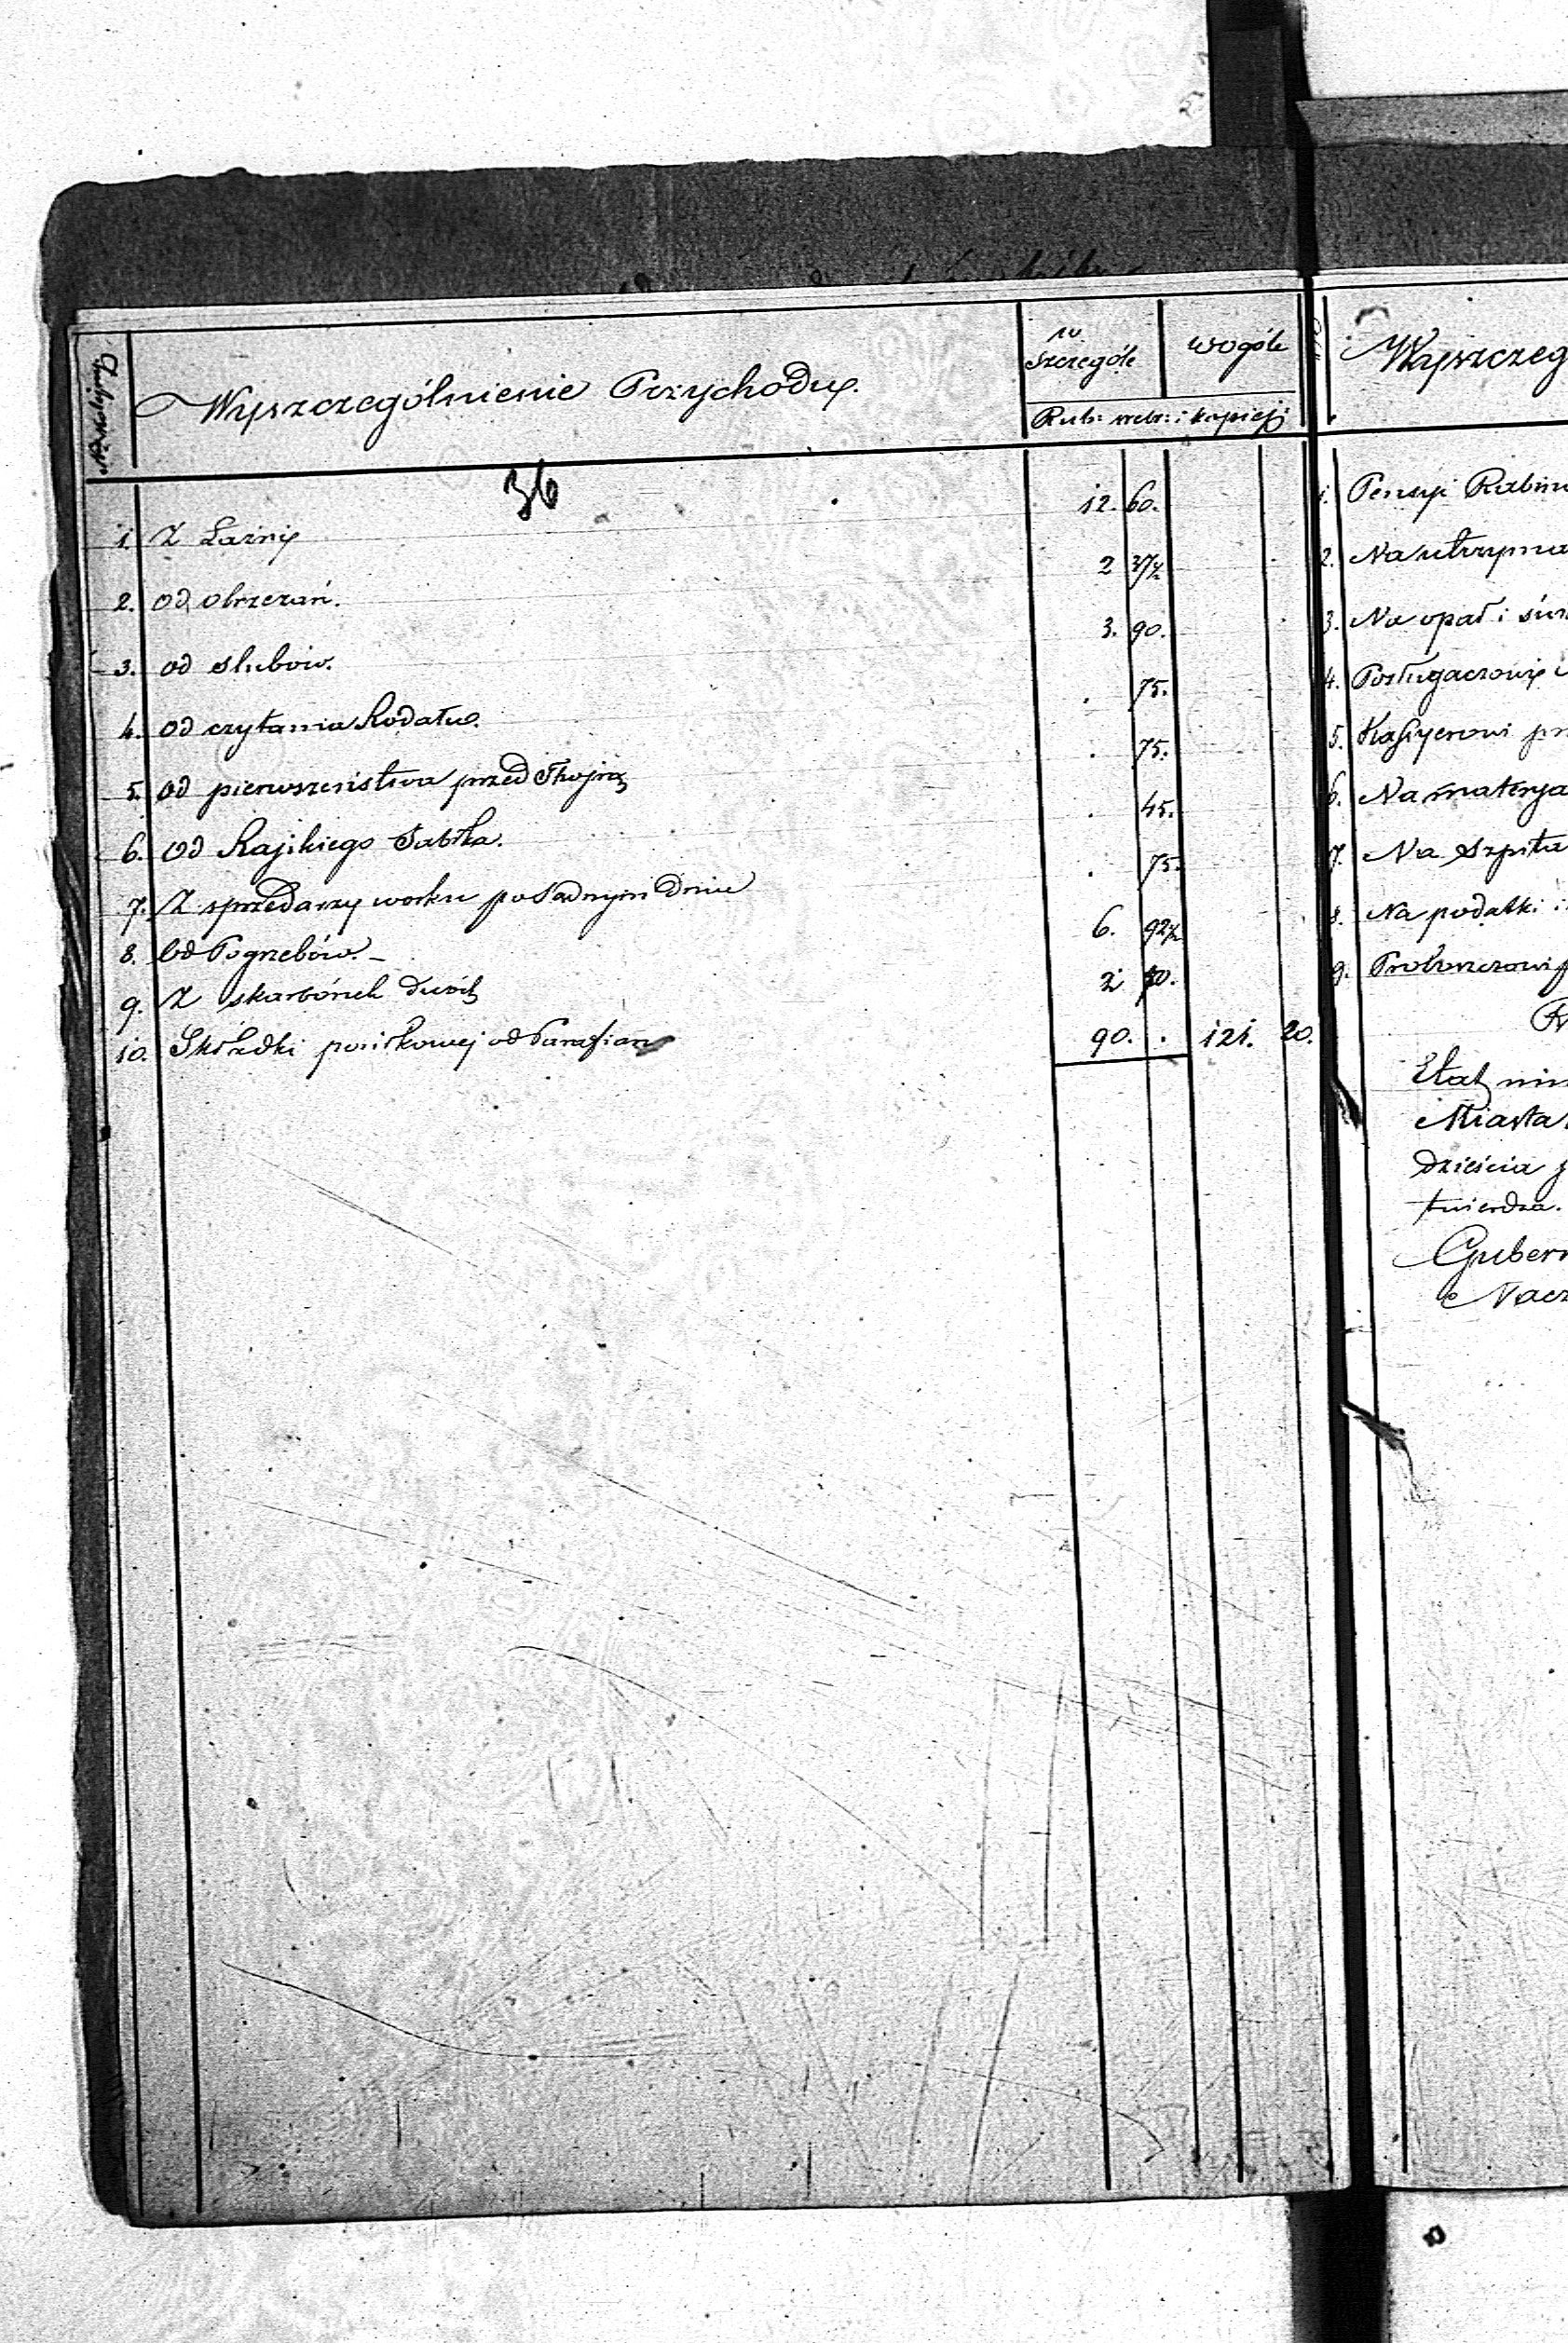 Wyszczególnienie Przychodu
w Szczególe
wogóle
Rub: srebr: i kopiejk:
36
1. Z Łaźni 12. 60.
2. od obrzezań. 2 37½
3. od slubów. 3. 90.
4. od czytania Rodału. . 75.
5. od pierwszeństwa przed Thojrą . 75.
6. od Rajskiego Jabłka. . 45.
7. Z sprzedarzy wosku po Sadnym Dniu . 75.
8. Od Pogrzebów. 6. 92½
9. Z skarbónek dwóch 2 70.
10. Składki posiłkowej od Parafian 90. . 121. 20.
Wyszczeg
1. Pensyi Rabino
2. Na utrzyma
3. Na opał i św
4. Posługaczowi
5. Kassyerowi pr
6. Na materya
7. Na Szpita
8. Na podatki i
9.
Etat nin
Miasta
dzieścia
twierdza.
Gubern
Nacz